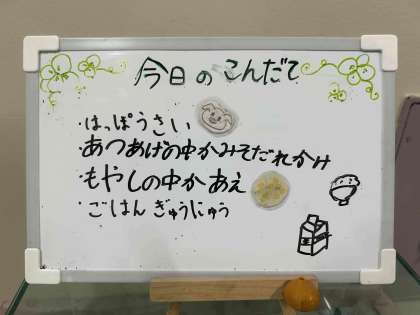 今日のこんだて
・はっぽうさい
・あつあげの中かみそだれかけ
・もやしの中かあえ
・ごはん ぎゅうにゅう